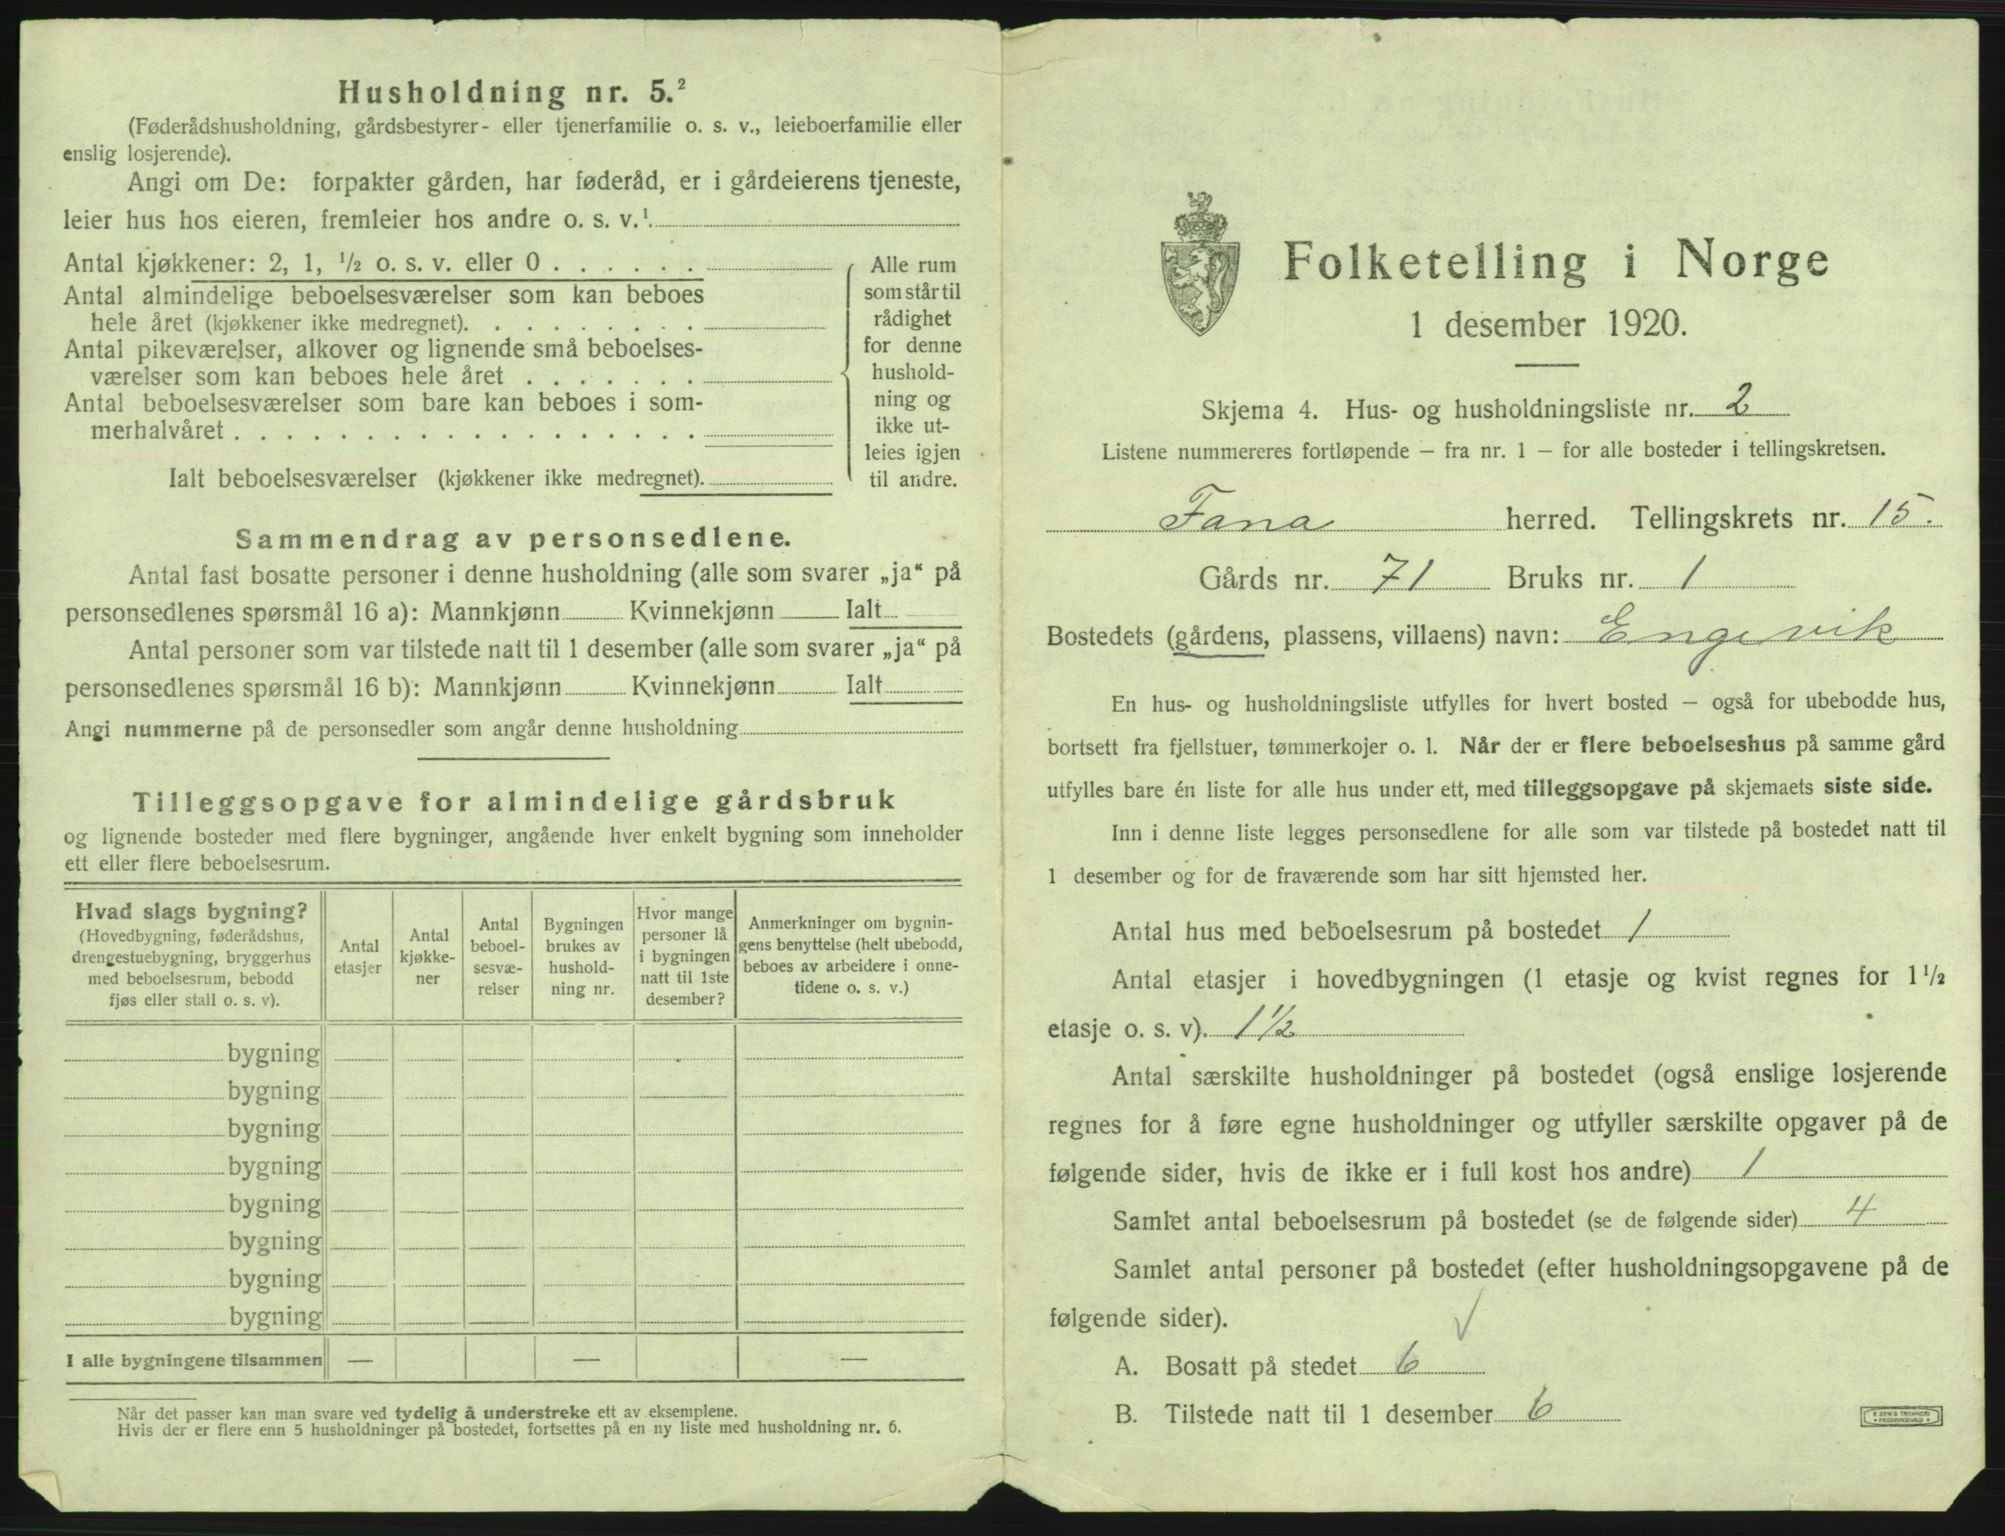 Husholdning nr. 5.²
(Føderådshusholdning, gårdsbestyrer- eller tjenerfamilie o. s. v., leieboerfamilie eller
enslig losjerende).
Angi om De: forpakter gården, har føderåd, er i gårdeierens tjeneste,
leier hus hos eieren, fremleier hos andre o. s. v.¹
Antal kjøkkener: 2, 1, ½ o. s. v. eller 0 . . . . . .
Antal almindelige beboelsesværelser som kan beboes
hele året (kjøkkener ikke medregnet). . . . . . . . .
Antal pikeværelser, alkover og lignende små beboelses-
værelser som kan beboes hele året . . . . . . .
Antal beboelsesværelser som bare kan beboes i som-
merhalvåret . . . . . . . . . . . . . . . . . .
Ialt beboelsesværelser (kjøkkener ikke medregnet).
Alle rum
som står til
rådighet
for denne
hushold-
ning og
ikke ut-
leies igjen
til andre.
Sammendrag av personsedlene.
Antal fast bosatte personer i denne husholdning (alle som svarer „ja“ på
personsedlenes spørsmål 16 a): Mannkjønn Kvinnekjønn Ialt
Antal personer som var tilstede natt til 1 desember (alle som svarer „ja“ på
personsedlenes spørsmål 16 b): Mannkjønn Kvinnekjønn Ialt
Angi nummerne på de personsedler som angår denne husholdning
Tilleggsopgave for almindelige gårdsbruk
og lignende bosteder med flere bygninger, angående hver enkelt bygning som inneholder
ett eller flere beboelsesrum.
Hvad slags bygning?
(Hovedbygning, føderådshus,
drengestuebygning, bryggerhus
med beboelsesrum, bebodd
fjøs eller stall o. s. v).
Antal
etasjer
Antal
kjøkke-
ner
Antal
beboel-
sesvæ-
relser
Bygningen
brukes av
hushold-
ning nr.
Hvor mange
personer lå
i bygningen
natt til 1ste
desember?
Anmerkninger om bygnin-
gens benyttelse (helt ubebodd,
beboes av arbeidere i onne-
tidene o. s. v.)
bygning
bygning
bygning
bygning
bygning
bygning
bygning
bygning
I alle bygningene tilsammen — — —
Når det passer kan man svare ved tydelig å understreke ett av eksemplene.
Hvis der er flere enn 5 husholdninger på bostedet, fortsettes på en ny liste med husholdning nr. 6.
Folketelling i Norge
1 desember 1920.
Skjema 4. Hus- og husholdningsliste nr. 2
Listene nummereres fortløpende – fra nr. 1 – for alle bosteder i tellingskretsen.
Fana herred. Tellingskrets nr. 15.
Gårds nr. 71 Bruks nr. 1
Bostedets (gårdens, plassens, villaens) navn: Engevik
En hus- og husholdningsliste utfylles for hvert bosted – også for ubebodde hus,
bortsett fra fjellstuer, tømmerkojer o. l. Når der er flere beboelseshus på samme gård
utfylles bare én liste for alle hus under ett, med tilleggsopgave på skjemaets siste side.
Inn i denne liste legges personsedlene for alle som var tilstede på bostedet natt til
1 desember og for de fraværende som har sitt hjemsted her.
Antal hus med beboelsesrum på bostedet 1
Antal etasjer i hovedbygningen (1 etasje og kvist regnes for 1½
etasje o. s. v). 1½
Antal særskilte husholdninger på bostedet (også enslige losjerende
regnes for å føre egne husholdninger og utfyller særskilte opgaver på de
følgende sider, hvis de ikke er i full kost hos andre) 1
Samlet antal beboelsesrum på bostedet (se de følgende sider) 4
Samlet antal personer på bostedet (efter husholdningsopgavene på de
følgende sider).
A. Bosatt på stedet 6
B. Tilstede natt til 1 desember 6